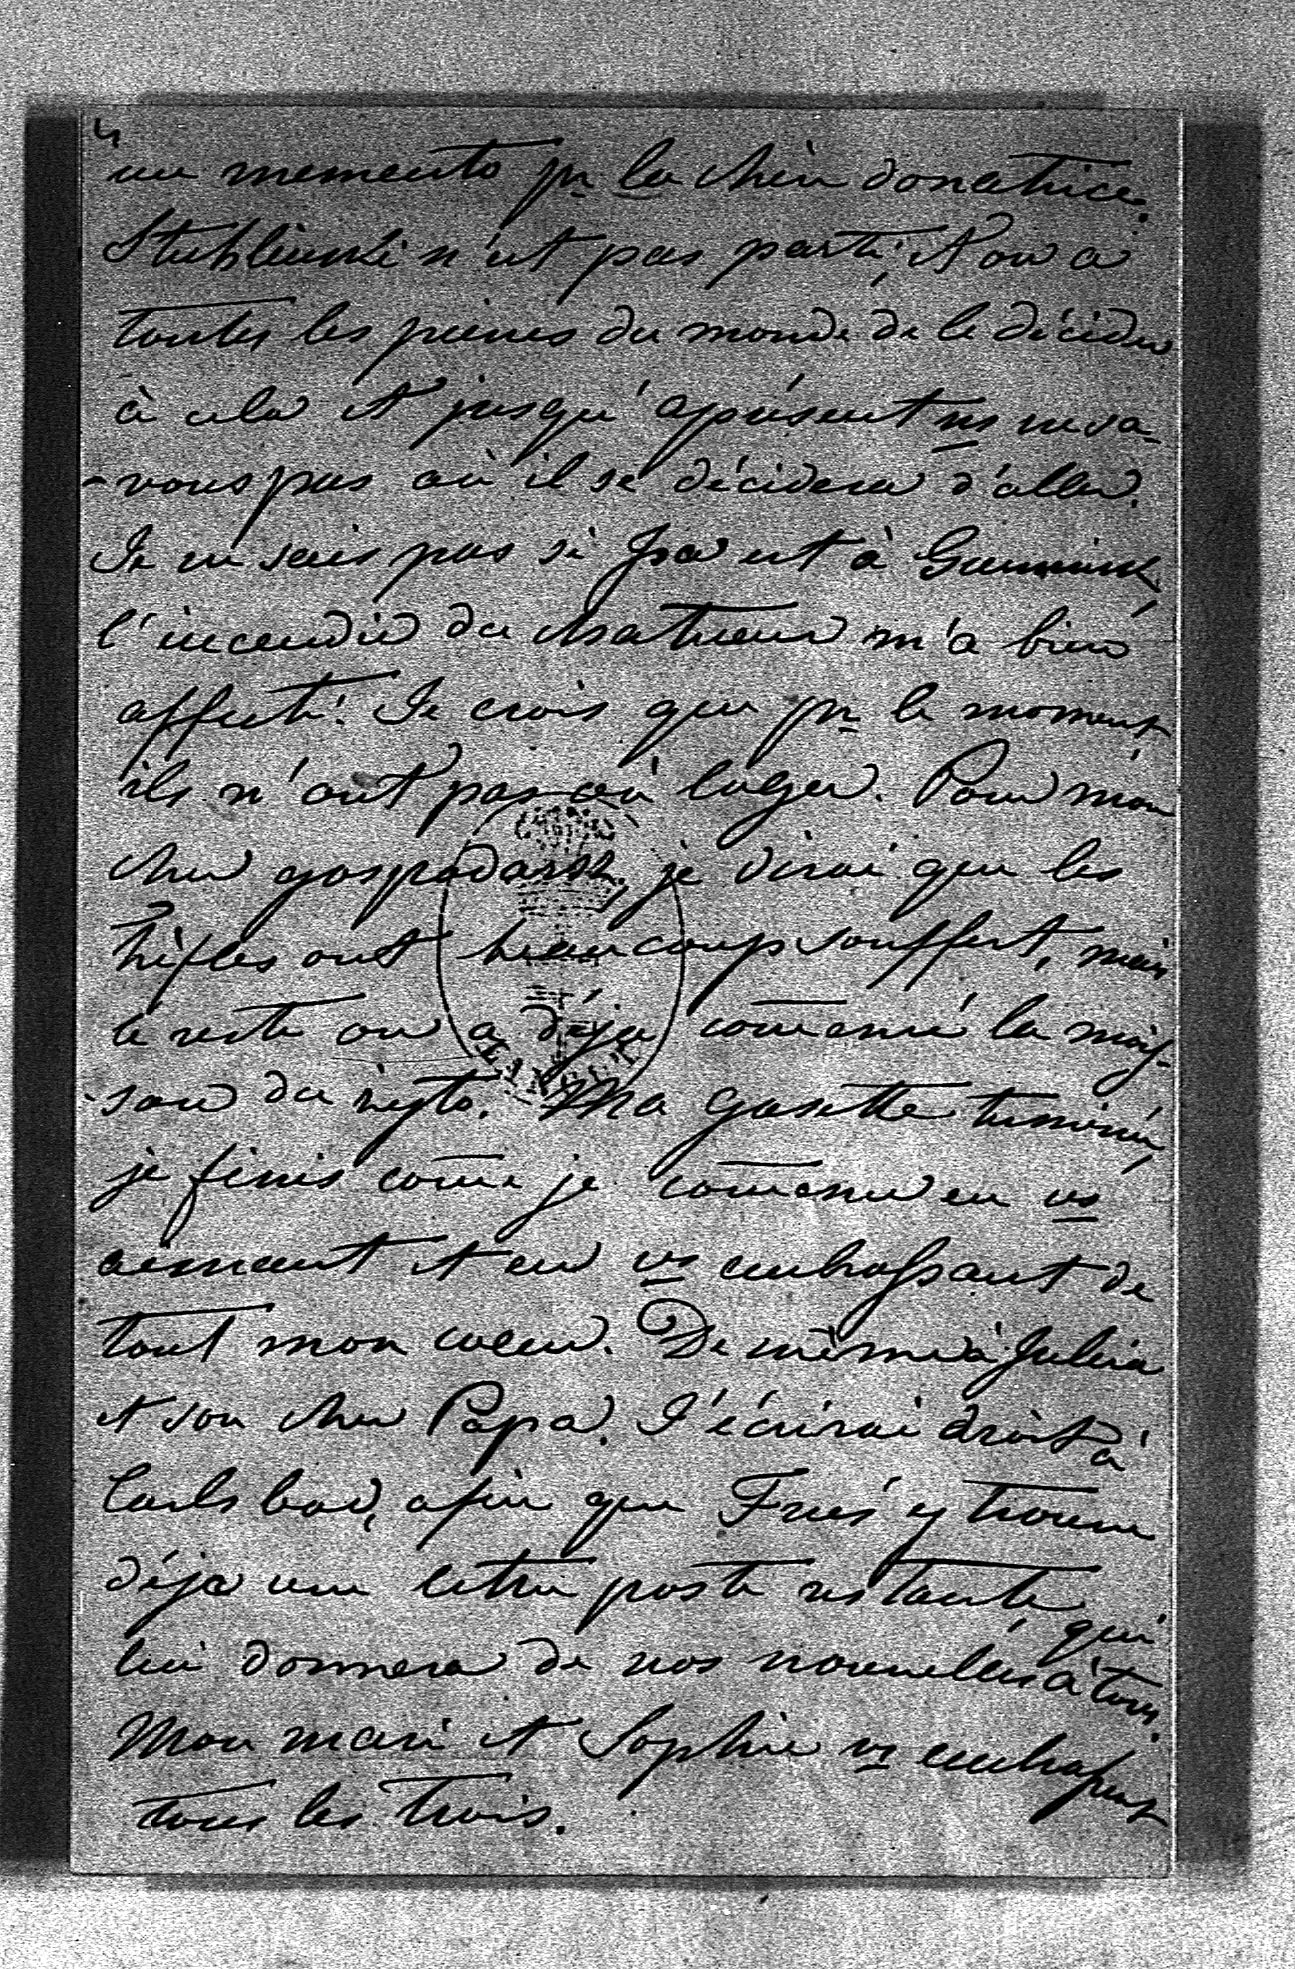 4
un memento pr la chère donatrice.
n'est pas parti, et on a
toutes les peines du monde de le décider
à cela et jusqu'apésent ns ne sa-
-vons pas où il se décidera d'aller.
Je ne sais pas si est à
l'incendie du m'a bien
affecté. Je crois que pr le moment
ils n'ont pas où loger. Pour mon
cher gospodarz, je dirai que les
trèfles ont beaucoup souffert, mais
le reste on a déja comencé la mois-
-son du żyto. Ma gasette terminée,
je finis come je comence en vs
aimant et en vs embrassant de
tout mon coeur. De même à Julia
et son cher Papa. J'écrirai droit à
Carlsbad, afin que y trouve
déja une lettre poste restante, qui
lui donnera de nos nouvelles à tous.
Mon mari et Sophie vs embrassent
tous les trois.